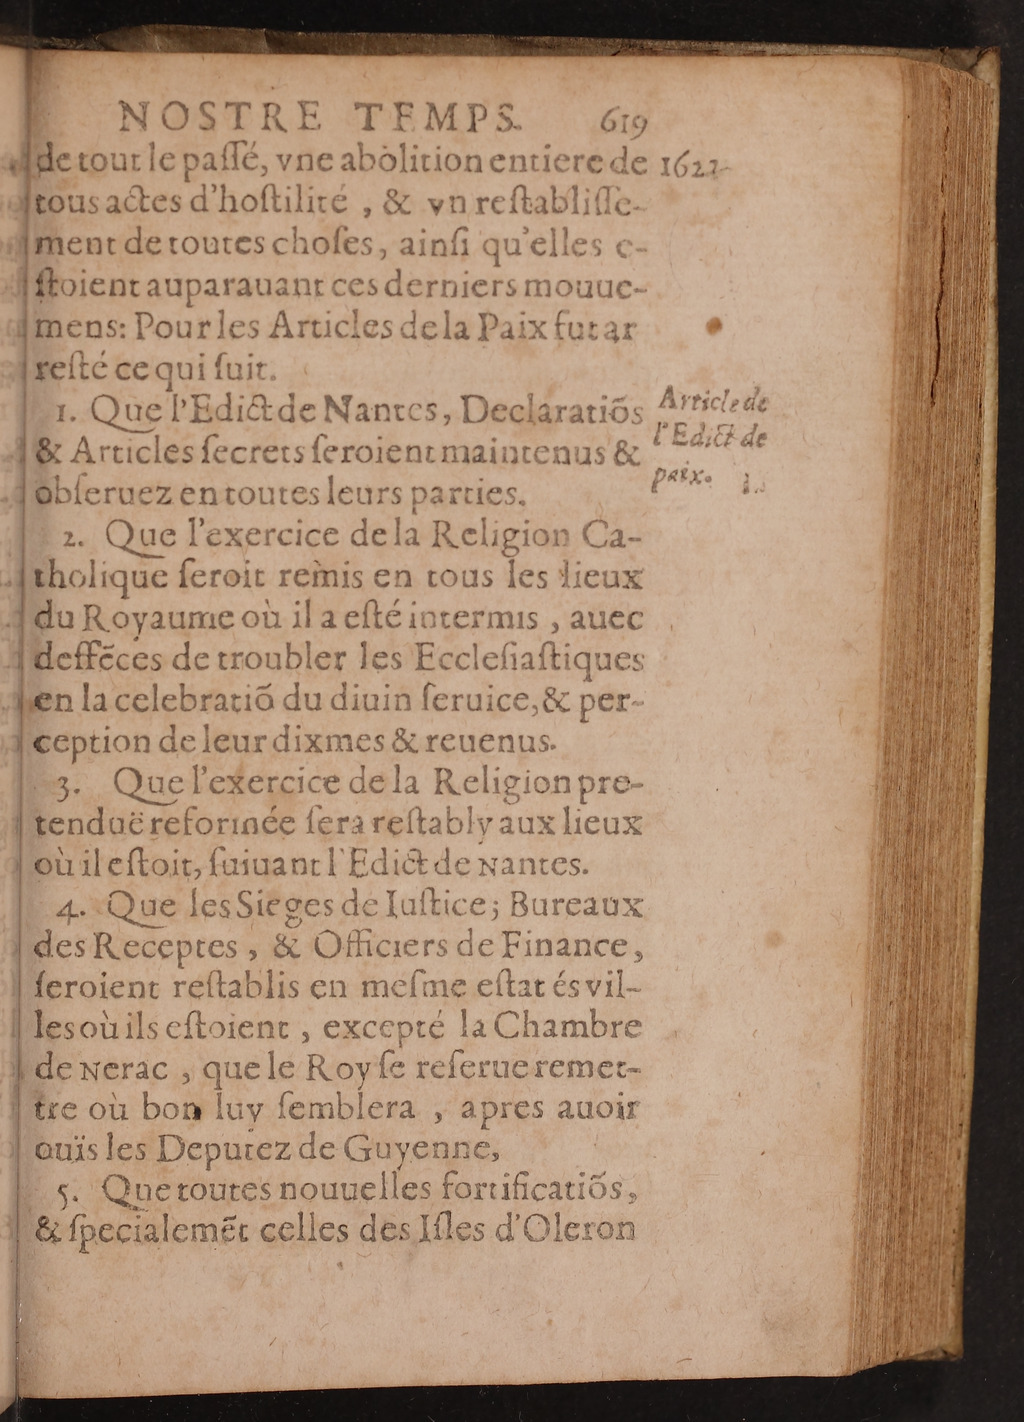 NOSTRE TEMPS. 619
de tout le paſſé, vne abolition entiere de 1622.
tous actes d'hoſtilité, & vn reſtabliſſe-
ment de toutes choſes, ainſi qu'elles e-
ſtoient auparauant ces derniers mouue-
mens: Pour les Articles de la Paix fut ar
reſté ce qui ſuit.
1. Que l'Edict de Nantes, Declaratiōs
& Articles ſecrets ſeroient maintenus &
obſeruez en toutes leurs parties.
Article de
l'Edict de
paix.
2. Que l'exercice de la Religion Ca-
tholique ſeroit remis en tous les lieux
du Royaume où il a eſté intermis, auec
deffēces de troubler les Eccleſiaſtiques
en la celebratiō du diuin ſeruice, & per-
ception de leur dixmes & reuenus.
3. Que l'exercice de la Religion pre-
tenduë reformée ſera reſtably aux lieux
où il eſtoit, ſuiuant l'Edict de Nantes.
4. Que les Sieges de Iuſtice; Bureaux
des Receptes, & Officiers de Finance,
ſeroient reſtablis en meſme eſtat és vil-
les où ils eſtoient, excepté la Chambre
de Nerac, que le Roy ſe reſerue remet-
tre où bon luy ſemblera, apres auoir
ouïs les Deputez de Guyenne,
5. Que toutes nouuelles fortificatiōs,
& ſpecialemēt celles des Iſles d'Oleron